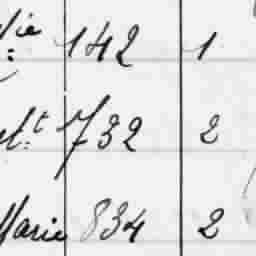 ie 142 1
lt 732 2
Marie 834 2